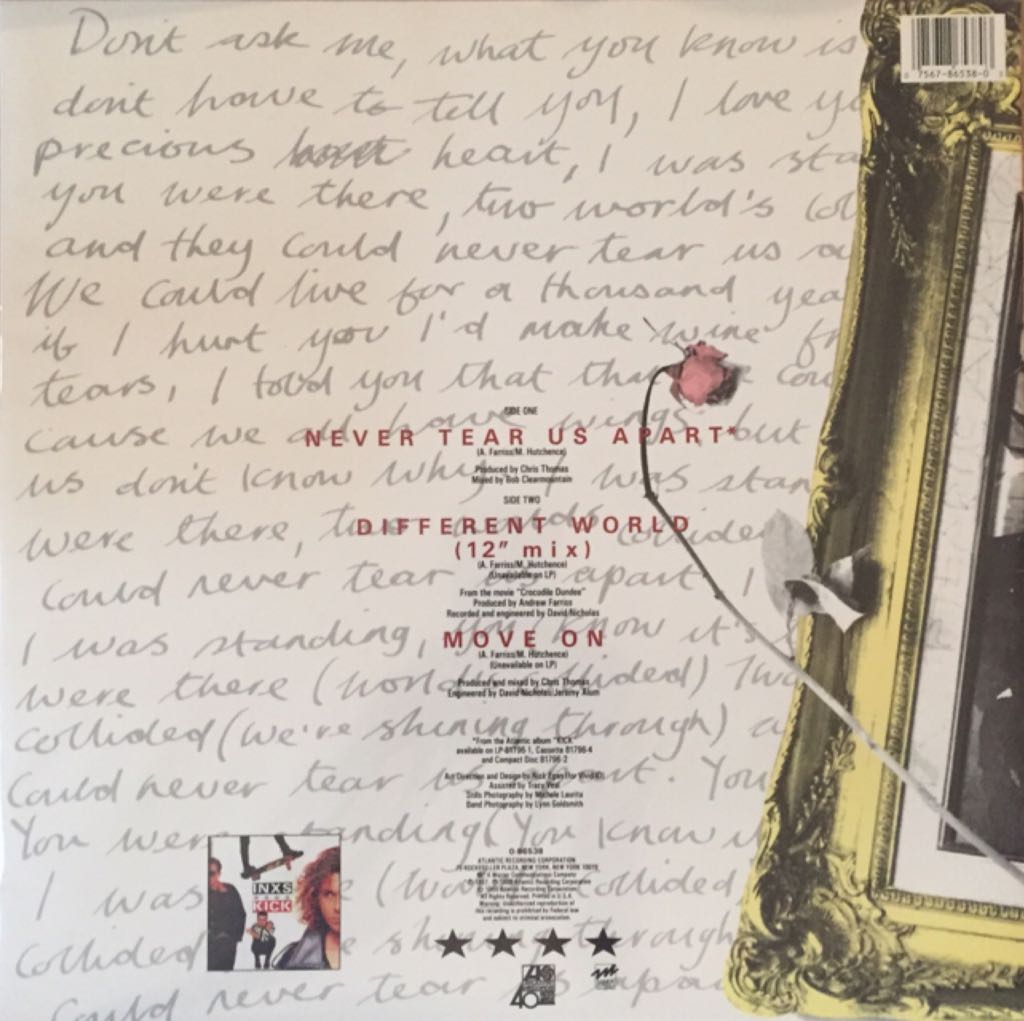 Don't ask me, what you know is
don't have to tell you, I love yo
precious heart, I was sta
you were there, two world's col
and they could never tear us a
We could live for a thousand yea
if I hurt you I'd make wine fr
tears, I told you that that cou
cause we all have wings but
us don't know why, I was stan
were there, two worlds collided
could never tear us apart I
I was standing, you know it's
were there (worlds collided) Two
collided (We're shining through) a
Could never tear us apart. You
You were standing (You know i
I was (two collided
collided we're shining through
Could never tear us apa
7567-86538-0
SIDE ONE
NEVER TEAR US APART*
(A. Farriss/M. Hutchence)
Produced by Chris Thomas
Mixed by Bob Clearmountain
SIDE TWO
DIFFERENT WORLD
(12" mix)
(A. Farriss/M. Hutchence)
(Unavailable on LP)
From the movie "Crocodile Dundee"
Produced by Andrew Farriss
Recorded and engineered by David Nicholas
MOVE ON
(A. Farriss/M. Hutchence)
(Unavailable on LP)
Produced and mixed by Chris Thomas
Engineered by David Nicholas/Jeremy Alum
*From the Atlantic album "KICK"
available on LP-81796-1, Cassette 81796-4
and Compact Disc 81796-2
Art Direction and Design by Nick Egan (for Vivid ID)
Assisted by Tracy Veal
Stills Photography by Michele Laurita
Band Photography by Lynn Goldsmith
INXS
KICK
0-86538
ATLANTIC RECORDING CORPORATION
75 ROCKEFELLER PLAZA, NEW YORK, NEW YORK 10019
A Warner Communications Company
Atlantic Recording Corporation
Atlantic Recording Corporation
All Rights Reserved. Printed in U.S.A.
Warning: Unauthorized reproduction of
this recording is prohibited by Federal law
and subject to criminal prosecution.
40